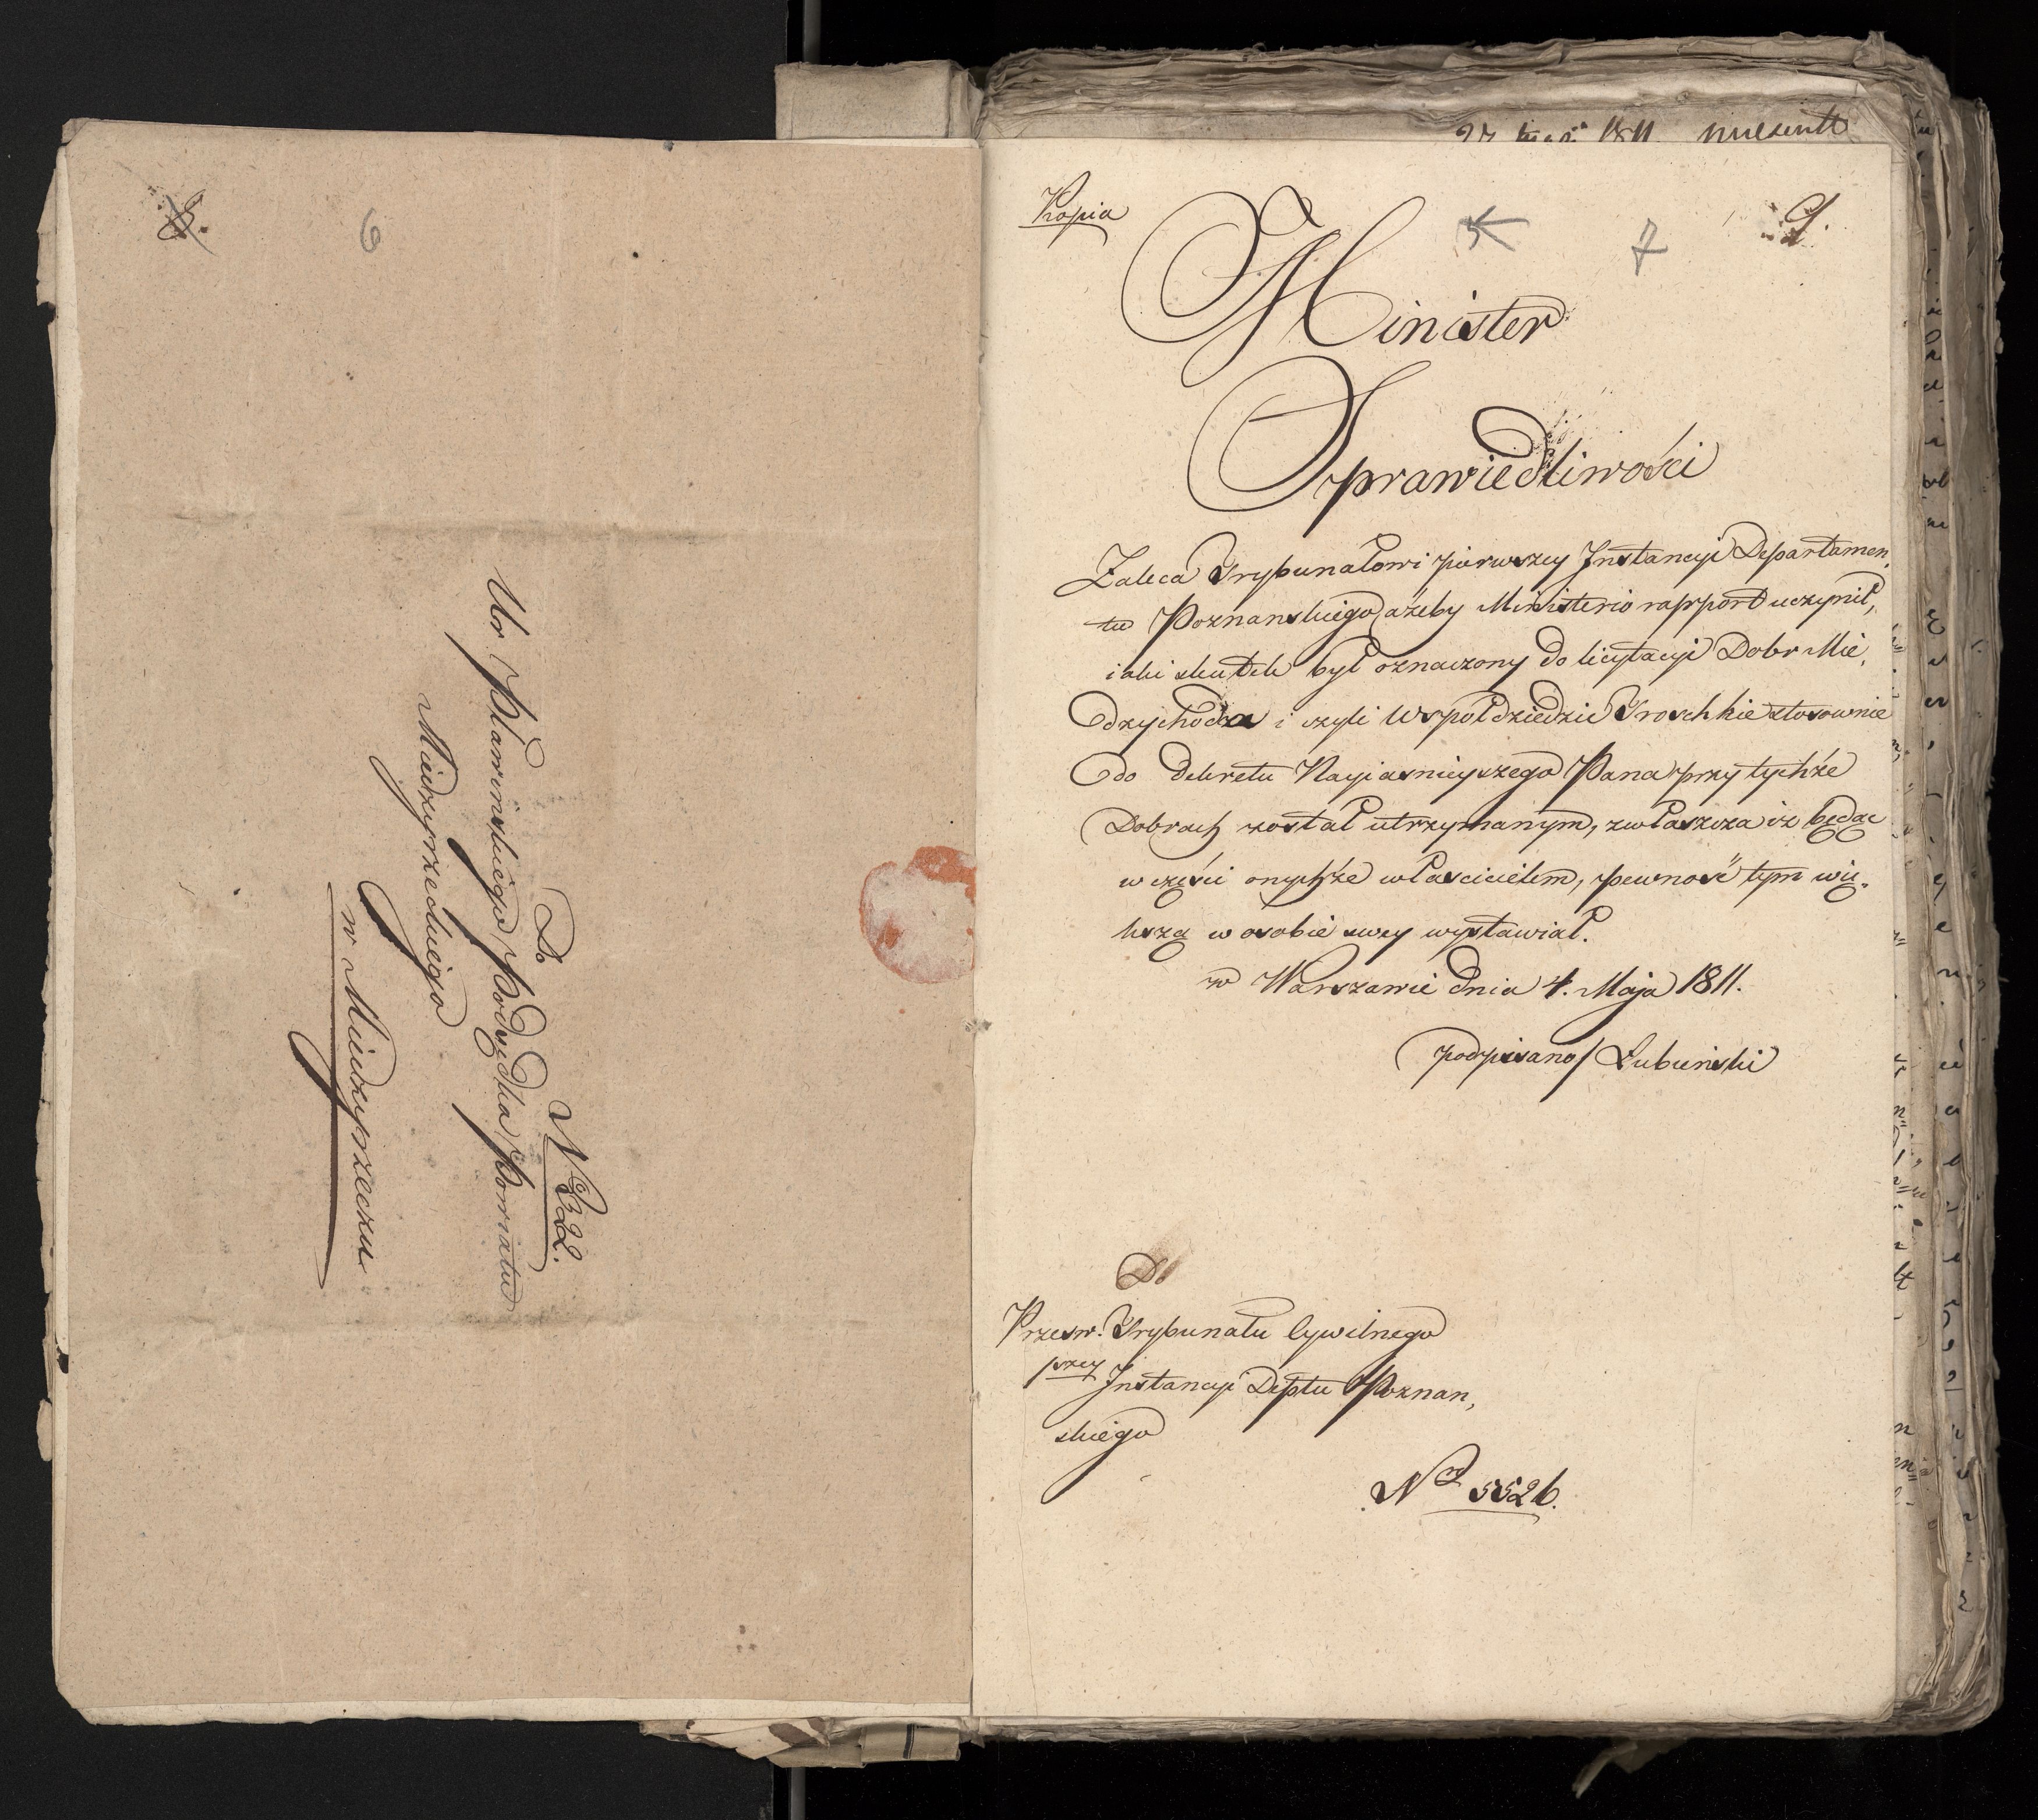 8.
6
Do
N 322.
Ur. Pławińskiego Podsędka Powiatu
Miedzyrzeckiego
w Miedzyrzeczu
27 1811.
Kopia
7
9.
Minister
Sprawiedliwości
Zaleca Trybunałowi pierwszey Instancyi Departamen,
tu Poznanskiego, ażeby Ministerio rapport uczynił,
iaki skutek był oznaczony do licytacyi Dobr Mie,
dzychodza i czyli Wspołdziedzic Troschkie stosownie
do dekretu Nayiasnieyszego Pana przy tychże
Dobrach został utrzymanym, zwłaszcza iż będąc
w części onychże własciecielem, pewność tym wię,
kszą w osobie swey wystawiał.
w Warszawie dnia 4. Maja 1811.
podpisano/ Łubieński
Do
Przesw. Trybunału Cywilnego
1szey Instancyi Deptu Poznan,
skiego
Nro 5526.